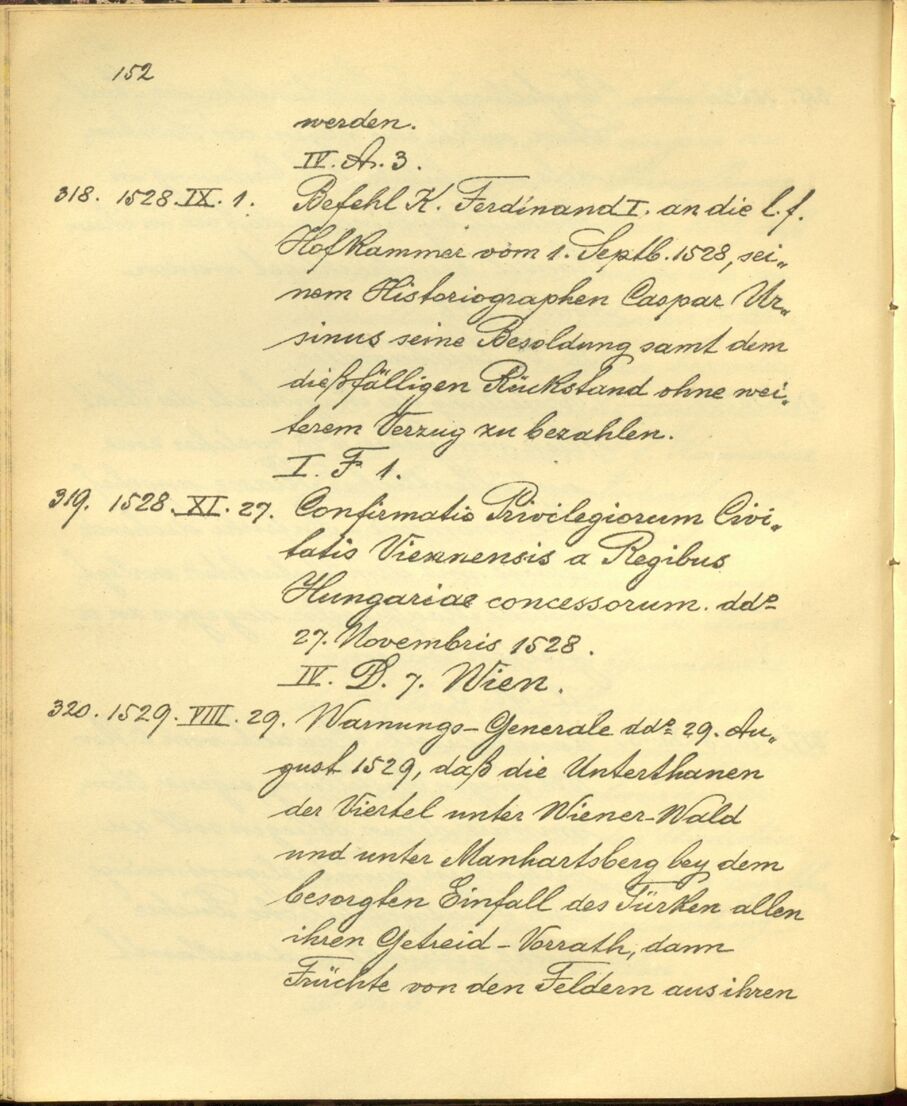 152
werden.
IV. A. 3.
318. 1528. IX. 1. Befehl K. Ferdinand I. an die l. f.
Hofkammer vom 1. Septb. 1528, sei„
nem Historiographen Caspar Ur„
sinus seine Besoldung samt dem
dießfälligen Rückstand ohne wei„
terem Verzug zu bezahlen.
I. F. 1.
319. 1528. XI. 27. Confirmatio Privilegiorum Civi„
tatis Viennensis a Regibus
Hungariae concessorum. ddo
27. Novembris 1528.
IV. D. 7. Wien.
320. 1529. VIII. 29. Warnungs-Generale ddo 29. Au„
gust 1529, daß die Unterthanen
der Viertel unter Wiener-Wald
und unter Manhartsberg bey dem
besorgten Einfall des Türken allen
ihren Getreid-Vorrath, dann
Früchte von den Feldern aus ihren